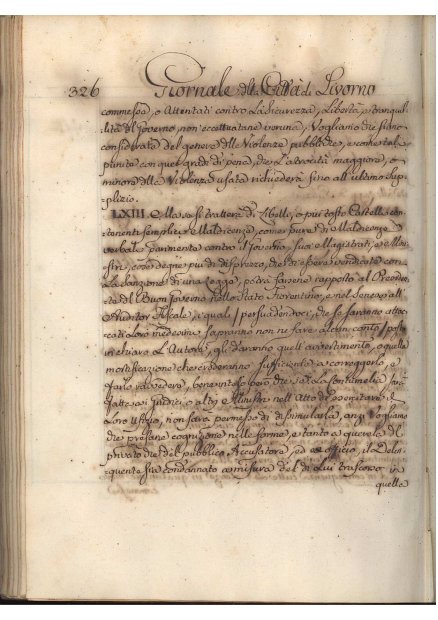 326 Giornale della Città di Livorno
commessa, o Attentati contro La Sicurezza, Libertà, e tranquil-
lità del Governo, non eccettuatane veruna, Vogliamo che siano
considerate del genere delle Violenze pubbliche, e come tali
punite con quel grado di pena, che L'atrocità maggiore, o
minore della Violenza usata richiederà sino all'ultimo sup-
plizio.
LXIII. Ma se si tratterà di Libelli, o più tosto Cartella con-
tenenti semplici Maldicenze, come pure di Maldicenza
verbale parimente contro il Governo, suoi Magistrati, e Mini-
stri, cose degne più di disprezzo, che di essere vendicate con
La Sanzione di una Legge, potrà farsene rapporto al Presiden-
te del Buon Governo nello Stato Fiorentino, e nel Senese all'
Auditor Fiscale, i quali persuadendoci, che si faranno attac-
cati Loro medesimi sapranno non ne fare alcun conto, o posto
in chiaro L'Autore, gli daranno quell'avvertimento, o quella
mortificazione che crederanno sufficiente a correggerlo, e
farlo ravvedere, beninteso però che se La Contumelia sarà
fatta ad Giudici o altri Ministri nell'Atto di esercitare il
Loro Uffizio, non sarà permesso di dissimularla, anzi Vogliamo
che prosane cognizione nelle forme, e tanto a querela del
privato che del pubblico Accusatore, o ex officio, il delin-
quente sia condannato a misura del di Lui trascorso in
quelle